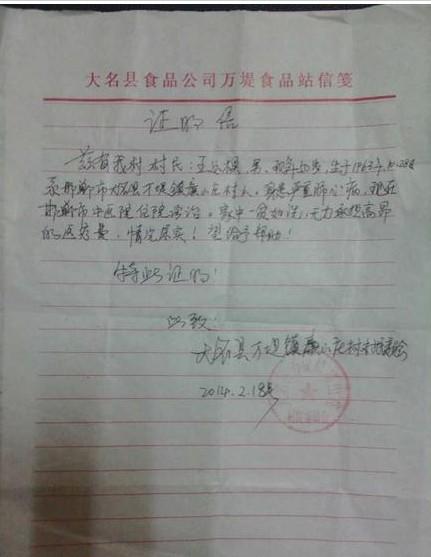 大名县食品公司万堤食品站信笺
证明信
兹有我村村民:王 男,现年50岁,生于1963年
系邯郸市大名县万堤镇 小庄村人,身患严重肺心病,现在
邯郸市中医院住院诊治。家中一贫如洗,无力承担高昂
的医疗费,情况属实!望给予帮助!
特此证明!
此致:
大名县万堤镇 小庄村村 委会
2014.2.18号